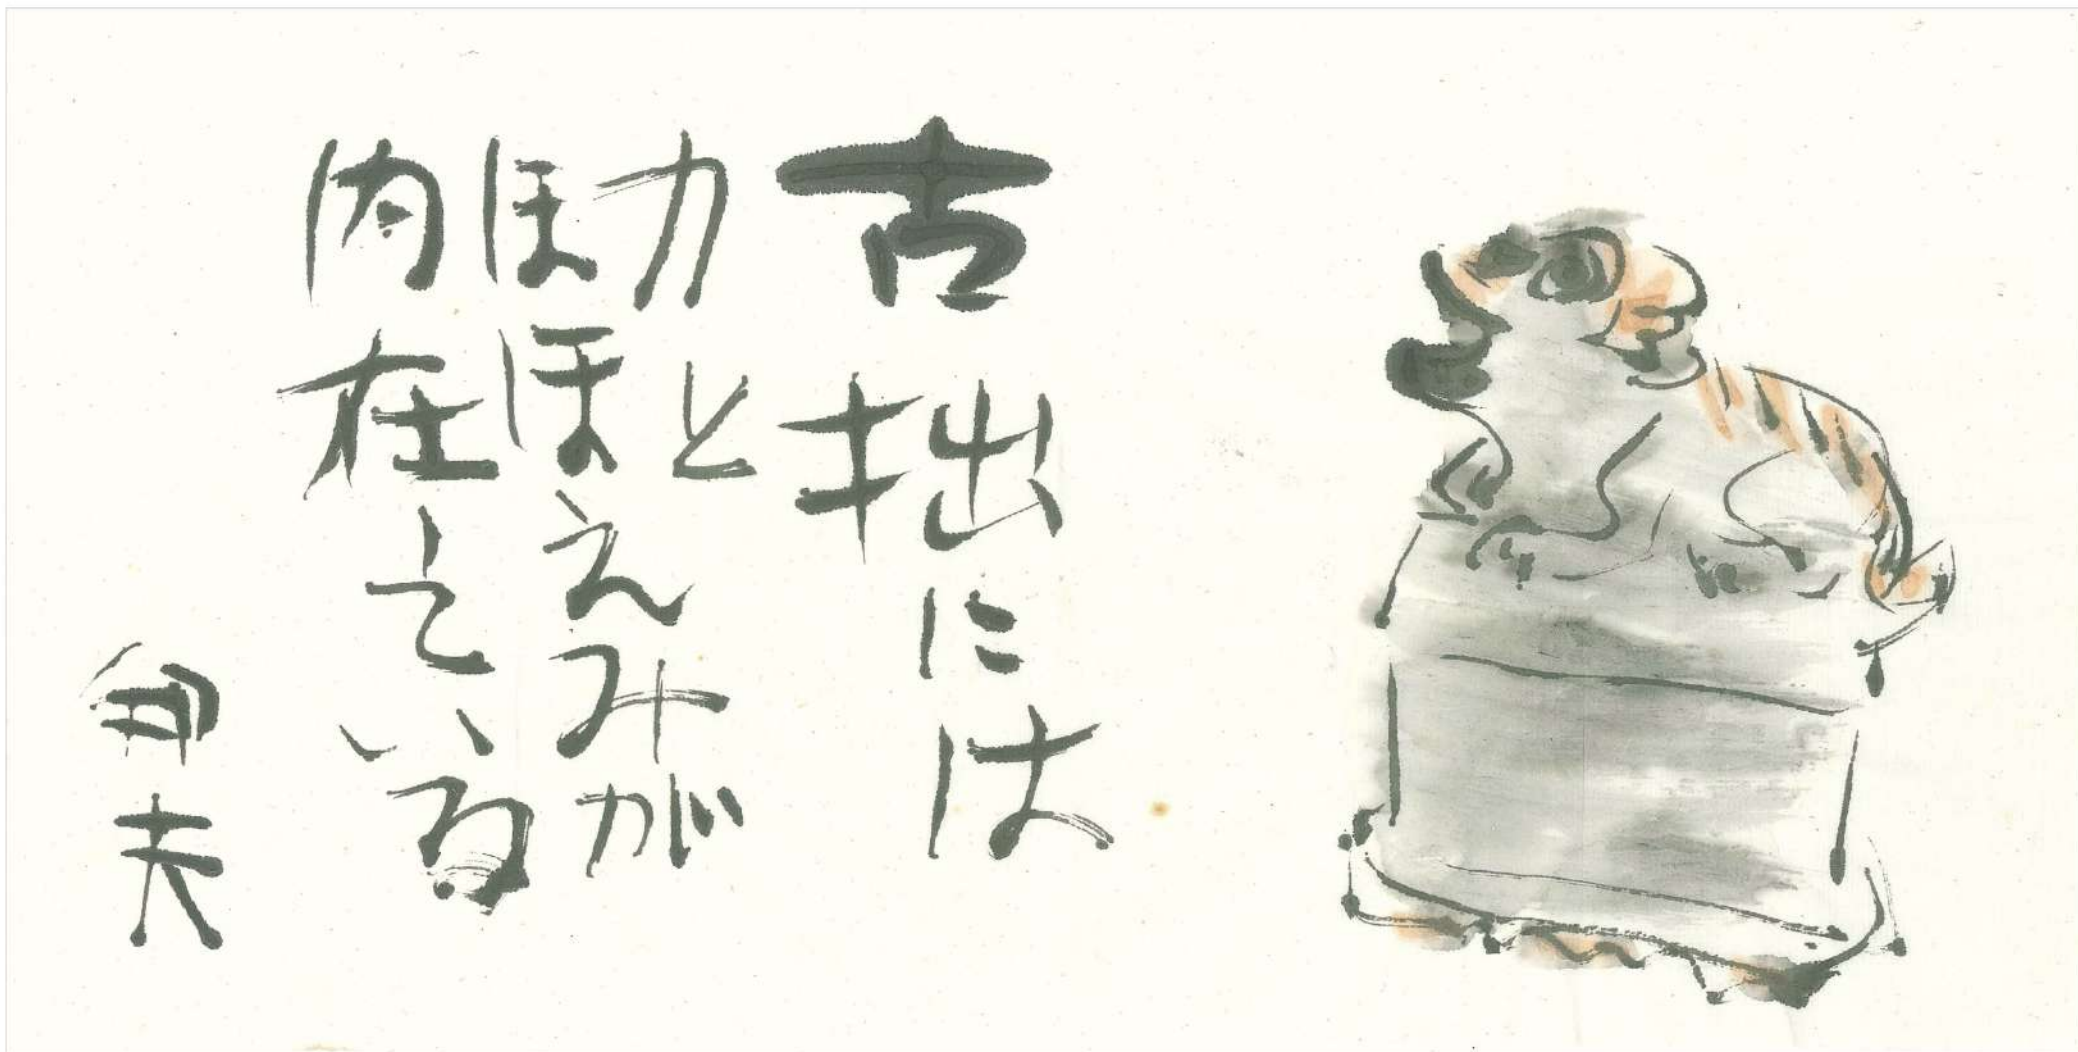 古拙には
力と
ほほえみが
内在している